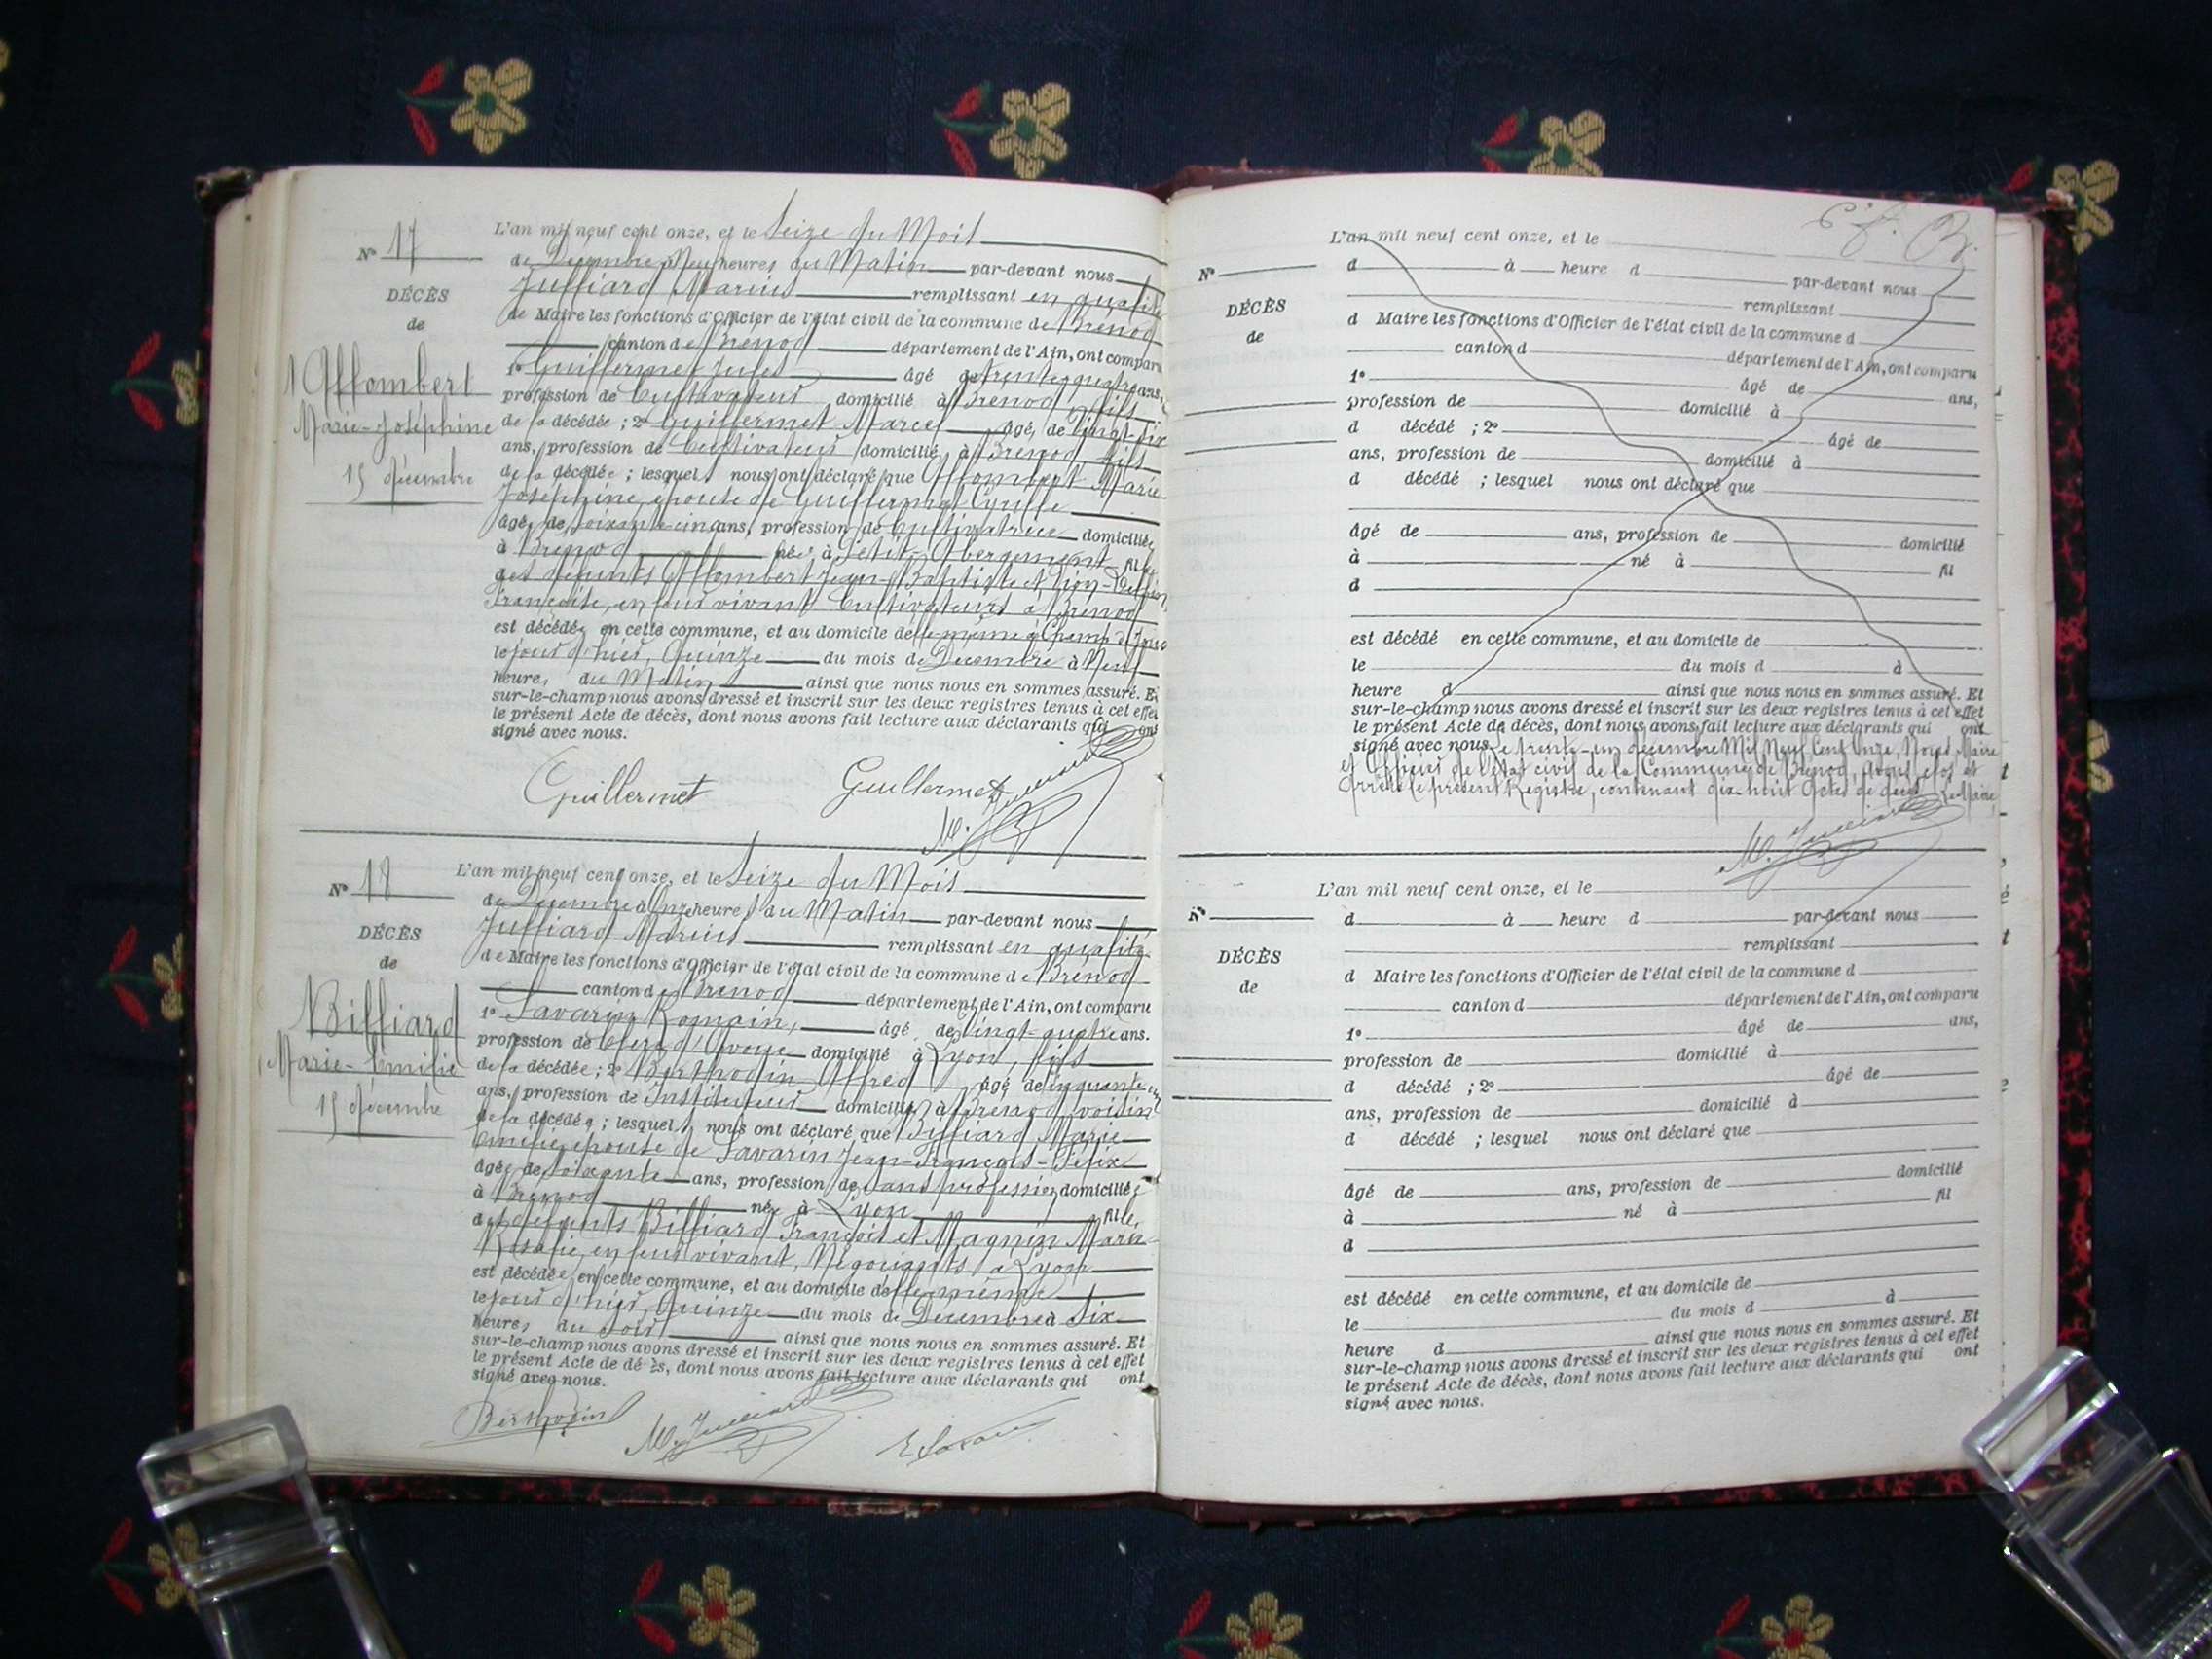 Nº 17
DÉCÈS
de
Allombert
Marie-Joséphine
15 décembre
L'an mil neuf cent onze, et le Seize du Mois
de Décembre à Neuf heures du Matin par-devant nous
Julliard Marius remplissant en qualité
de Maire les fonctions d'Officier de l'état civil de la commune de Brénod
canton de Brénod département de l'Ain, ont comparu
1º Guillermet Jules âgé de trente-quatre ans,
profession de Cultivateur domicilié à Brénod, fils
de la décédée ; 2º Guillermet Marcel âgé de Vingt-six
ans, profession de Cultivateur domicilié à Brénod fils
de la décédée ; lesquels nous ont déclaré que Allombert Marie
Joséphine, épouse de Guillermet Cyrille
âgée de soixante-cinq ans, profession de Cultivatrice domiciliée
à Brénod née à Petit-Abergement fille
des défunts Allombert Jean-Baptiste et
Françoise, en leur vivant Cultivateurs à Brénod
est décédée en cette commune, et au domicile de elle-même à Champ d'
le jour d'hier, Quinze du mois de Décembre à Neuf
heures du Matin ainsi que nous nous en sommes assuré. Et
sur-le-champ nous avons dressé et inscrit sur les deux registres tenus à cet effet
le présent Acte de décès, dont nous avons fait lecture aux déclarants qui ont
signé avec nous.
Guillermet Guillermet
M. Julliard
Nº 18
DÉCÈS
de
Billiard
Marie-Emilie
15 décembre
L'an mil neuf cent onze, et le Seize du Mois
de Décembre à Onze heures du Matin par-devant nous
Julliard Marius remplissant en qualité
de Maire les fonctions d'Officier de l'état civil de la commune de Brénod
canton de Brénod département de l'Ain, ont comparu
1º Savarin Romain, âgé de Vingt-quatre ans.
profession de Clerc d'Avoué domicilié à Lyon, fils
de la décédée ; 2º Berthodin Alfred âgé de cinquante
ans, profession de Instituteur domicilié à Brénod, voisin
de la décédée ; lesquels nous ont déclaré que Billiard Marie
Emilie, épouse de Savarin Jean-François-Félix
âgée de soixante ans, profession de sans profession domiciliée
à Brénod née à Lyon fille
des défunts Billiard François et Magnin Marie
Rosalie, en leur vivant, Négociants à Lyon
est décédée en cette commune, et au domicile de elle-même
le jour d'hier, Quinze du mois de Décembre à Six
heures du Soir ainsi que nous nous en sommes assuré. Et
sur-le-champ nous avons dressé et inscrit sur les deux registres tenus à cet effet
le présent Acte de décès, dont nous avons fait lecture aux déclarants qui ont
signé avec nous.
Berthodin M. Julliard R Savarin
Nº
DÉCÈS
de
L'an mil neuf cent onze, et le
d à heure d par-devant nous
remplissant
d Maire les fonctions d'Officier de l'état civil de la commune d
canton d département de l'Ain, ont comparu
1º âgé de ans,
profession de domicilié à
d décédé ; 2º âgé de
ans, profession de domicilié à
d décédé ; lesquel nous ont déclaré que
âgé de ans, profession de domicilié
à né à fil
d
est décédé en cette commune, et au domicile de
le du mois d à
heure d ainsi que nous nous en sommes assuré. Et
sur-le-champ nous avons dressé et inscrit sur les deux registres tenus à cet effet
le présent Acte de décès, dont nous avons fait lecture aux déclarants qui ont
signé avec nous. Le trente-un décembre Mil Neuf Cent Onze, Nous, Maire
et Officier de l'état civil de la Commune de Brénod, avons clos et
arrêté le présent Registre, contenant dix-huit Actes de décès. Le Maire,
M. Julliard
Nº
DÉCÈS
de
L'an mil neuf cent onze, et le
d à heure d par-devant nous
remplissant
d Maire les fonctions d'Officier de l'état civil de la commune d
canton d département de l'Ain, ont comparu
1º âgé de ans,
profession de domicilié à
d décédé ; 2º âgé de
ans, profession de domicilié à
d décédé ; lesquel nous ont déclaré que
âgé de ans, profession de domicilié
à né à fil
d
est décédé en cette commune, et au domicile de
le du mois d à
heure d ainsi que nous nous en sommes assuré. Et
sur-le-champ nous avons dressé et inscrit sur les deux registres tenus à cet effet
le présent Acte de décès, dont nous avons fait lecture aux déclarants qui ont
signé avec nous.